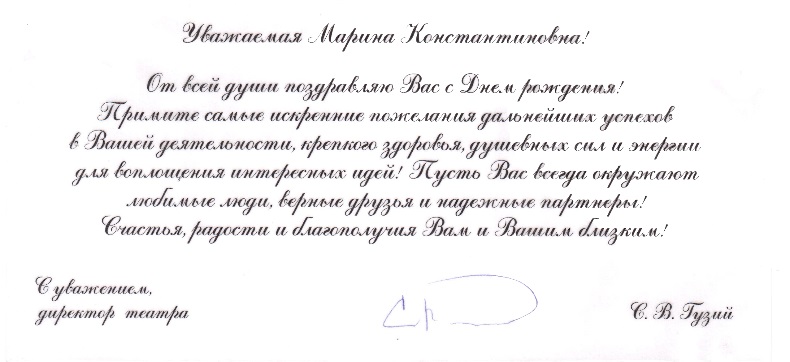 Уважаемая Марина Константиновна!
От всей души поздравляю Вас с Днем рождения!
Примите самые искренние пожелания дальнейших успехов
в Вашей деятельности, крепкого здоровья, душевных сил и энергии
для воплощения интересных идей! Пусть Вас всегда окружают
любимые люди, верные друзья и надежные партнеры!
Счастья, радости и благополучия Вам и Вашим близким!
С уважением,
директор театра
С. В. Гузий